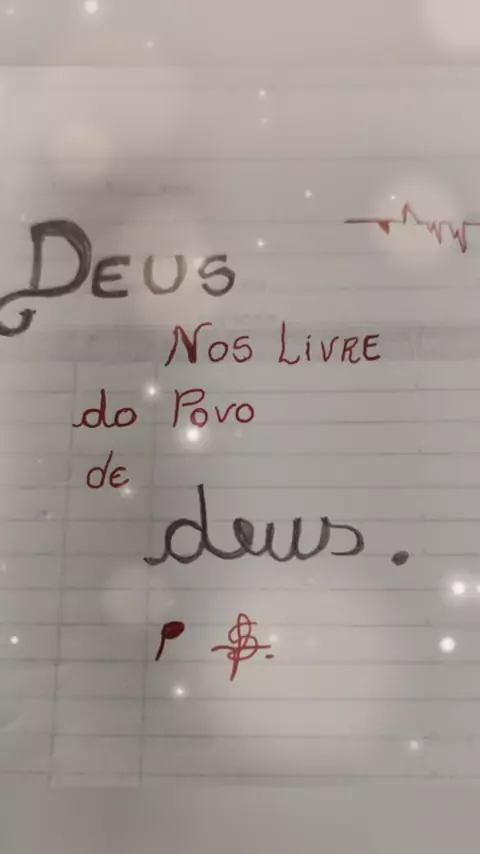 DEUS
NOS LIVRE
do Povo
de
deus.